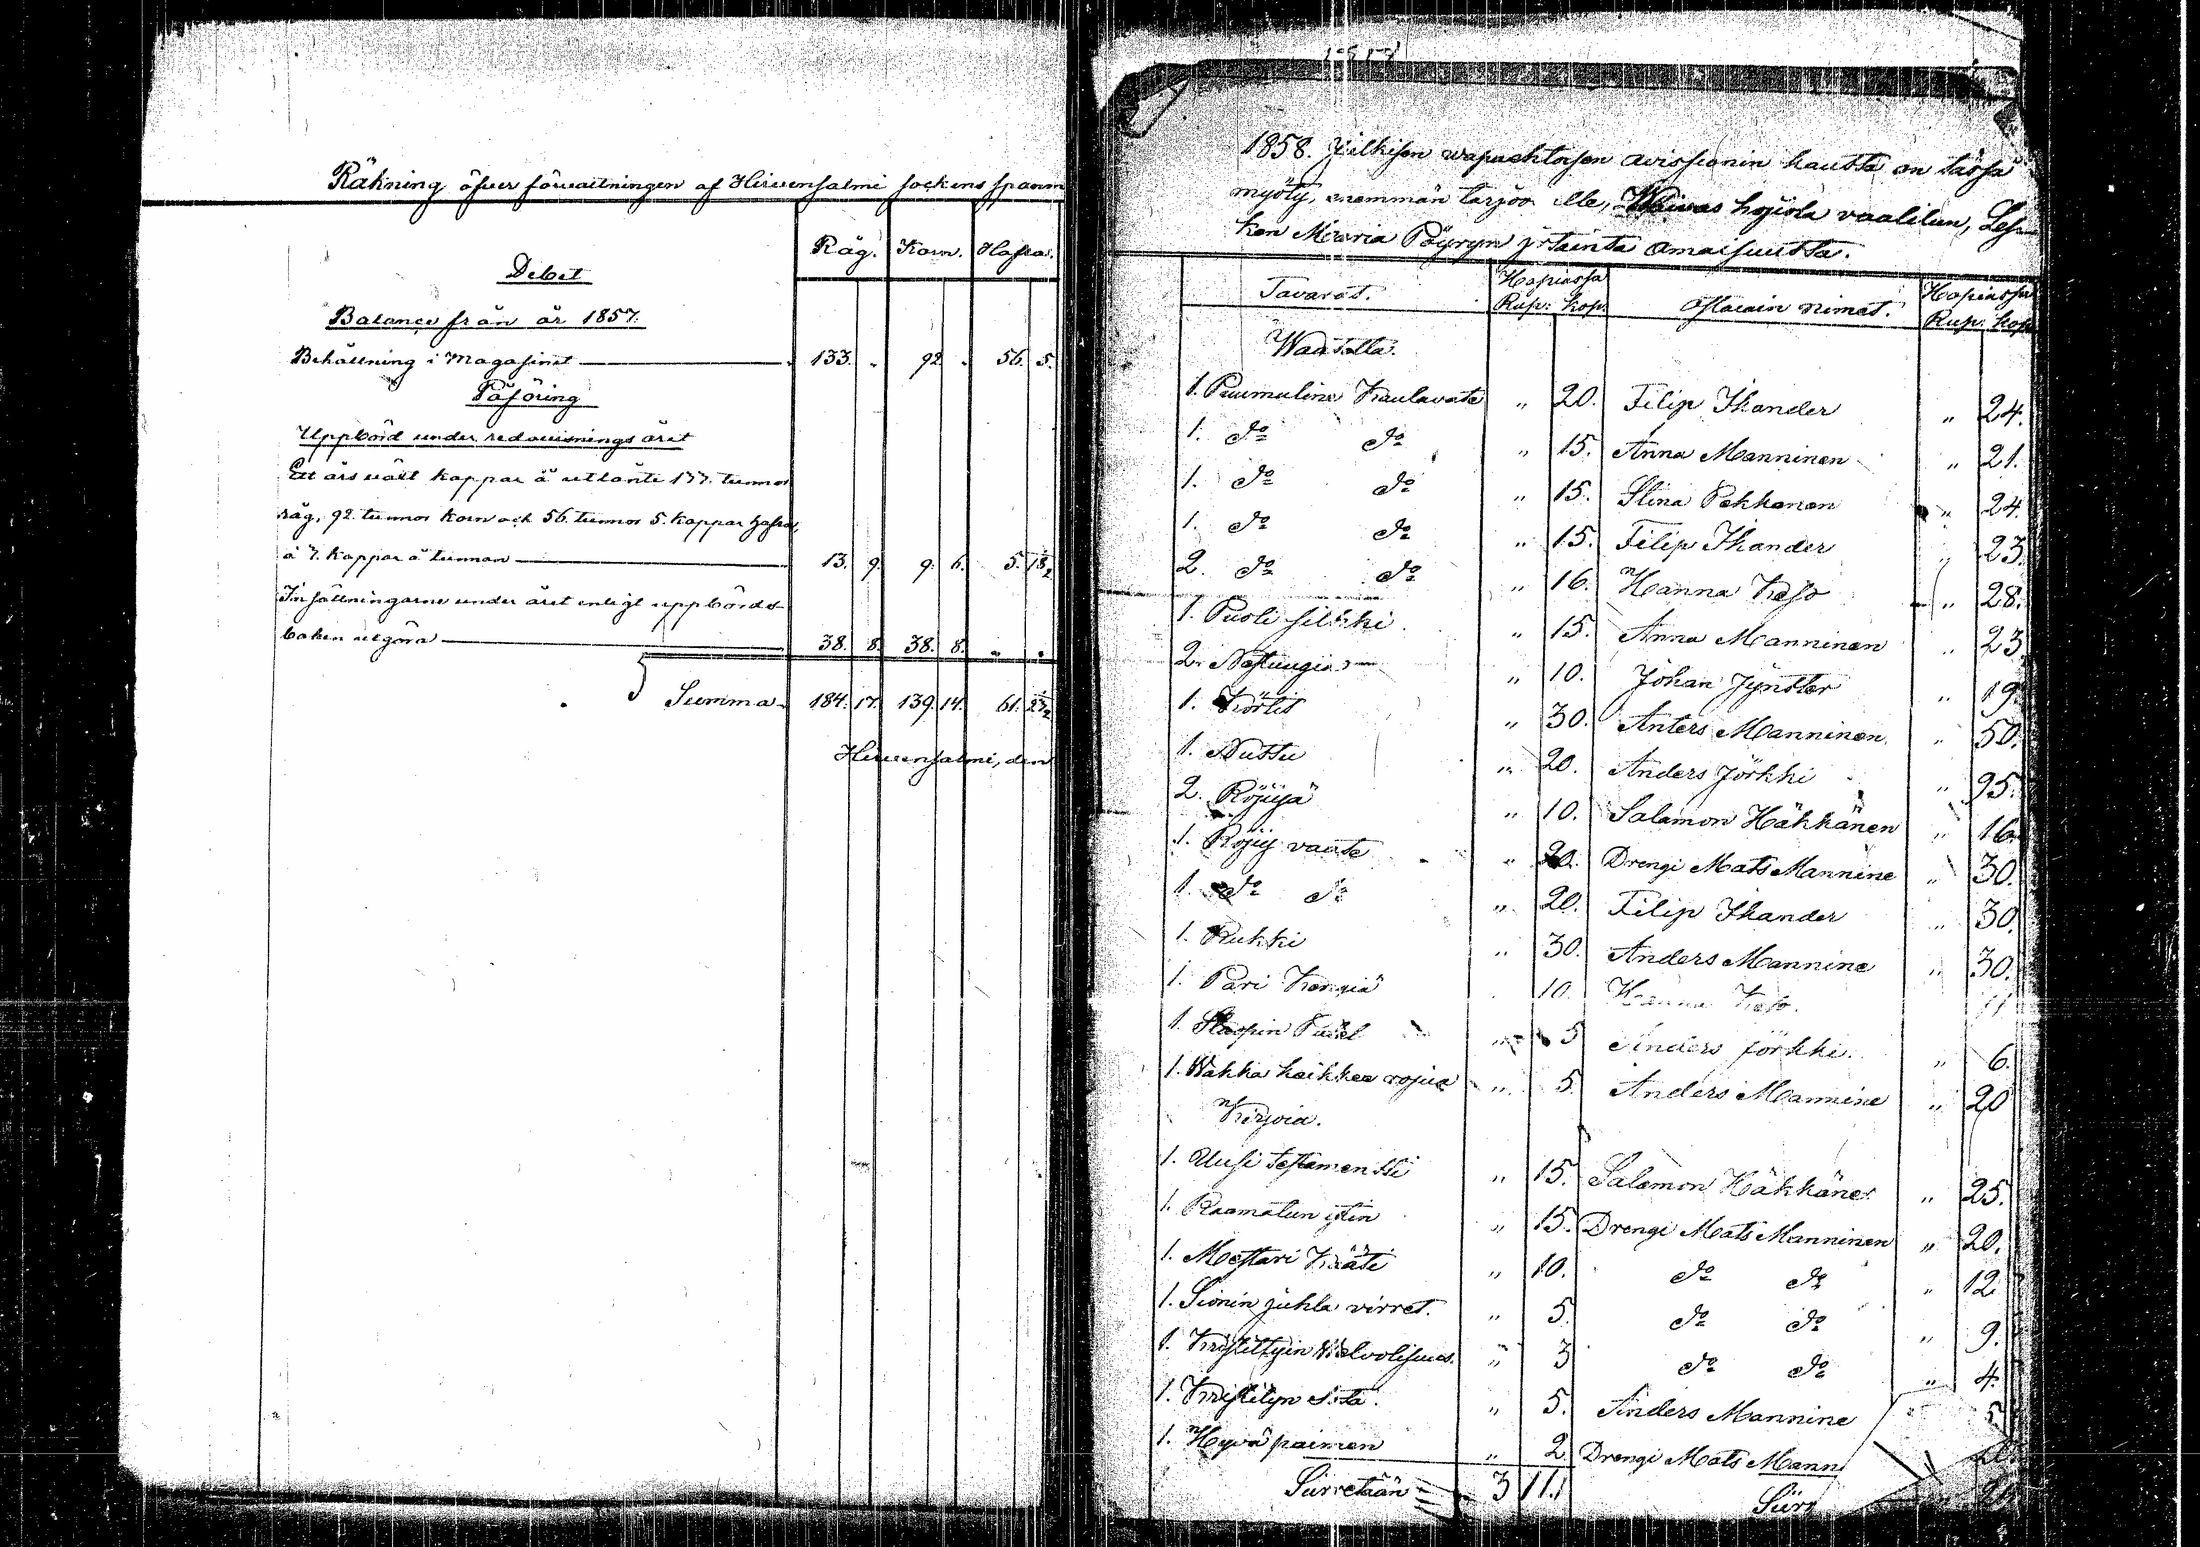 Räkning öfver förvaltningen af Hirvensalmi sockens spanm
Råg. Korn. Hafra.
Debet
Balance från år 1857.
Behållning i Magasinet 133. „ 92 „ 56. 5.
Påföring
Uppbörd under redovisnings året
Ett års växt kappar å utlånte 177. tunnor
råg, 92 tunnor korn och 56. tunnor 5. kappar hafra,
à 7. kappar å tunnan 13. 9. 9. 6. 5. 18½
Insättningarne under året enligt uppbörds-
boken utgöra 38. 8. 38. 8. „ „
Summa 184. 17. 139. 14. 61. 23½
Hirvensalmi, den
1858. Julkisen vapaehtosen avissionin kautta on tässä
myöty, enemmän tarjoo elle, Waivas hojiola vaalilun, Les-
ken Maria Pöyryn jrtainta omaisuutta.
Tavarat. Hopiassa Rup: kop. Ostaiain nimet. Hopiassa Rup: kop.
Waatetta.
1. Puumuline Kaulavate „ 20. Filip Ikander „ 24.
1. do do „ 15. Anna Manninen „ 21.
1. do do „ 15. Stina Pekkanen „ 24.
1. do do „ 15. Filip Ikander „ 23.
2. do do „ 16. Hanna Keso „ 28.
1. Puoli silkki „ 15. Anna Manninen „ 23.
2. „ 10. Johan Jyntter „ 19.
1. Körtit „ 30. Anters Manninen „ 50.
1. Nuttu „ 20. Anders Jörkki „ 95.
2. Röijyjä „ 10. Salamon Häkkänen „ 16.
1. Röijy vaate „ 20. Drengi Mats Mannine „ 30.
1. do do „ 20. Filip Ikander „ 30.
1. Rukki „ 30. Anders Mannine „ 30.
1. Pari Kengiä 10. Hanna Keso. 11
1. „ 5 Anders Jörkki. „ 6.
1. Wakka kaikkea rojua „ 5. Anders Mannine „ 20
Kirjoia.
1. Uusi testamentti „ 15. Salamon Häkkäner „ 25.
1. Raamatun ytin „ 15. Drengi Mats Manninen „ 20.
1. Mestari Kääti „ 10. do do „ 12
1. Sionin juhla virret. „ 5. do do „ 9.
1. Kristittyin „ 3 do do „ 4.
1. Kristityn Sota. „ 5. Anders Mannine 5
1. Hyvä paimen „ 2 Drengi Mats Mann
Siirretään 3 11. Siirr